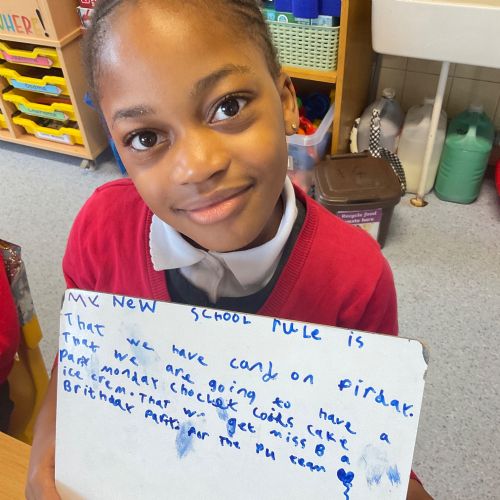 WHERE
Recycle food
waste here
MY NeW SCHOOL rULE is
That we have candy on Firday.
That we are going to have a
Party monday chocket cooks cake
ice crem. That we get miss B a
Brithday Party. For the PH team